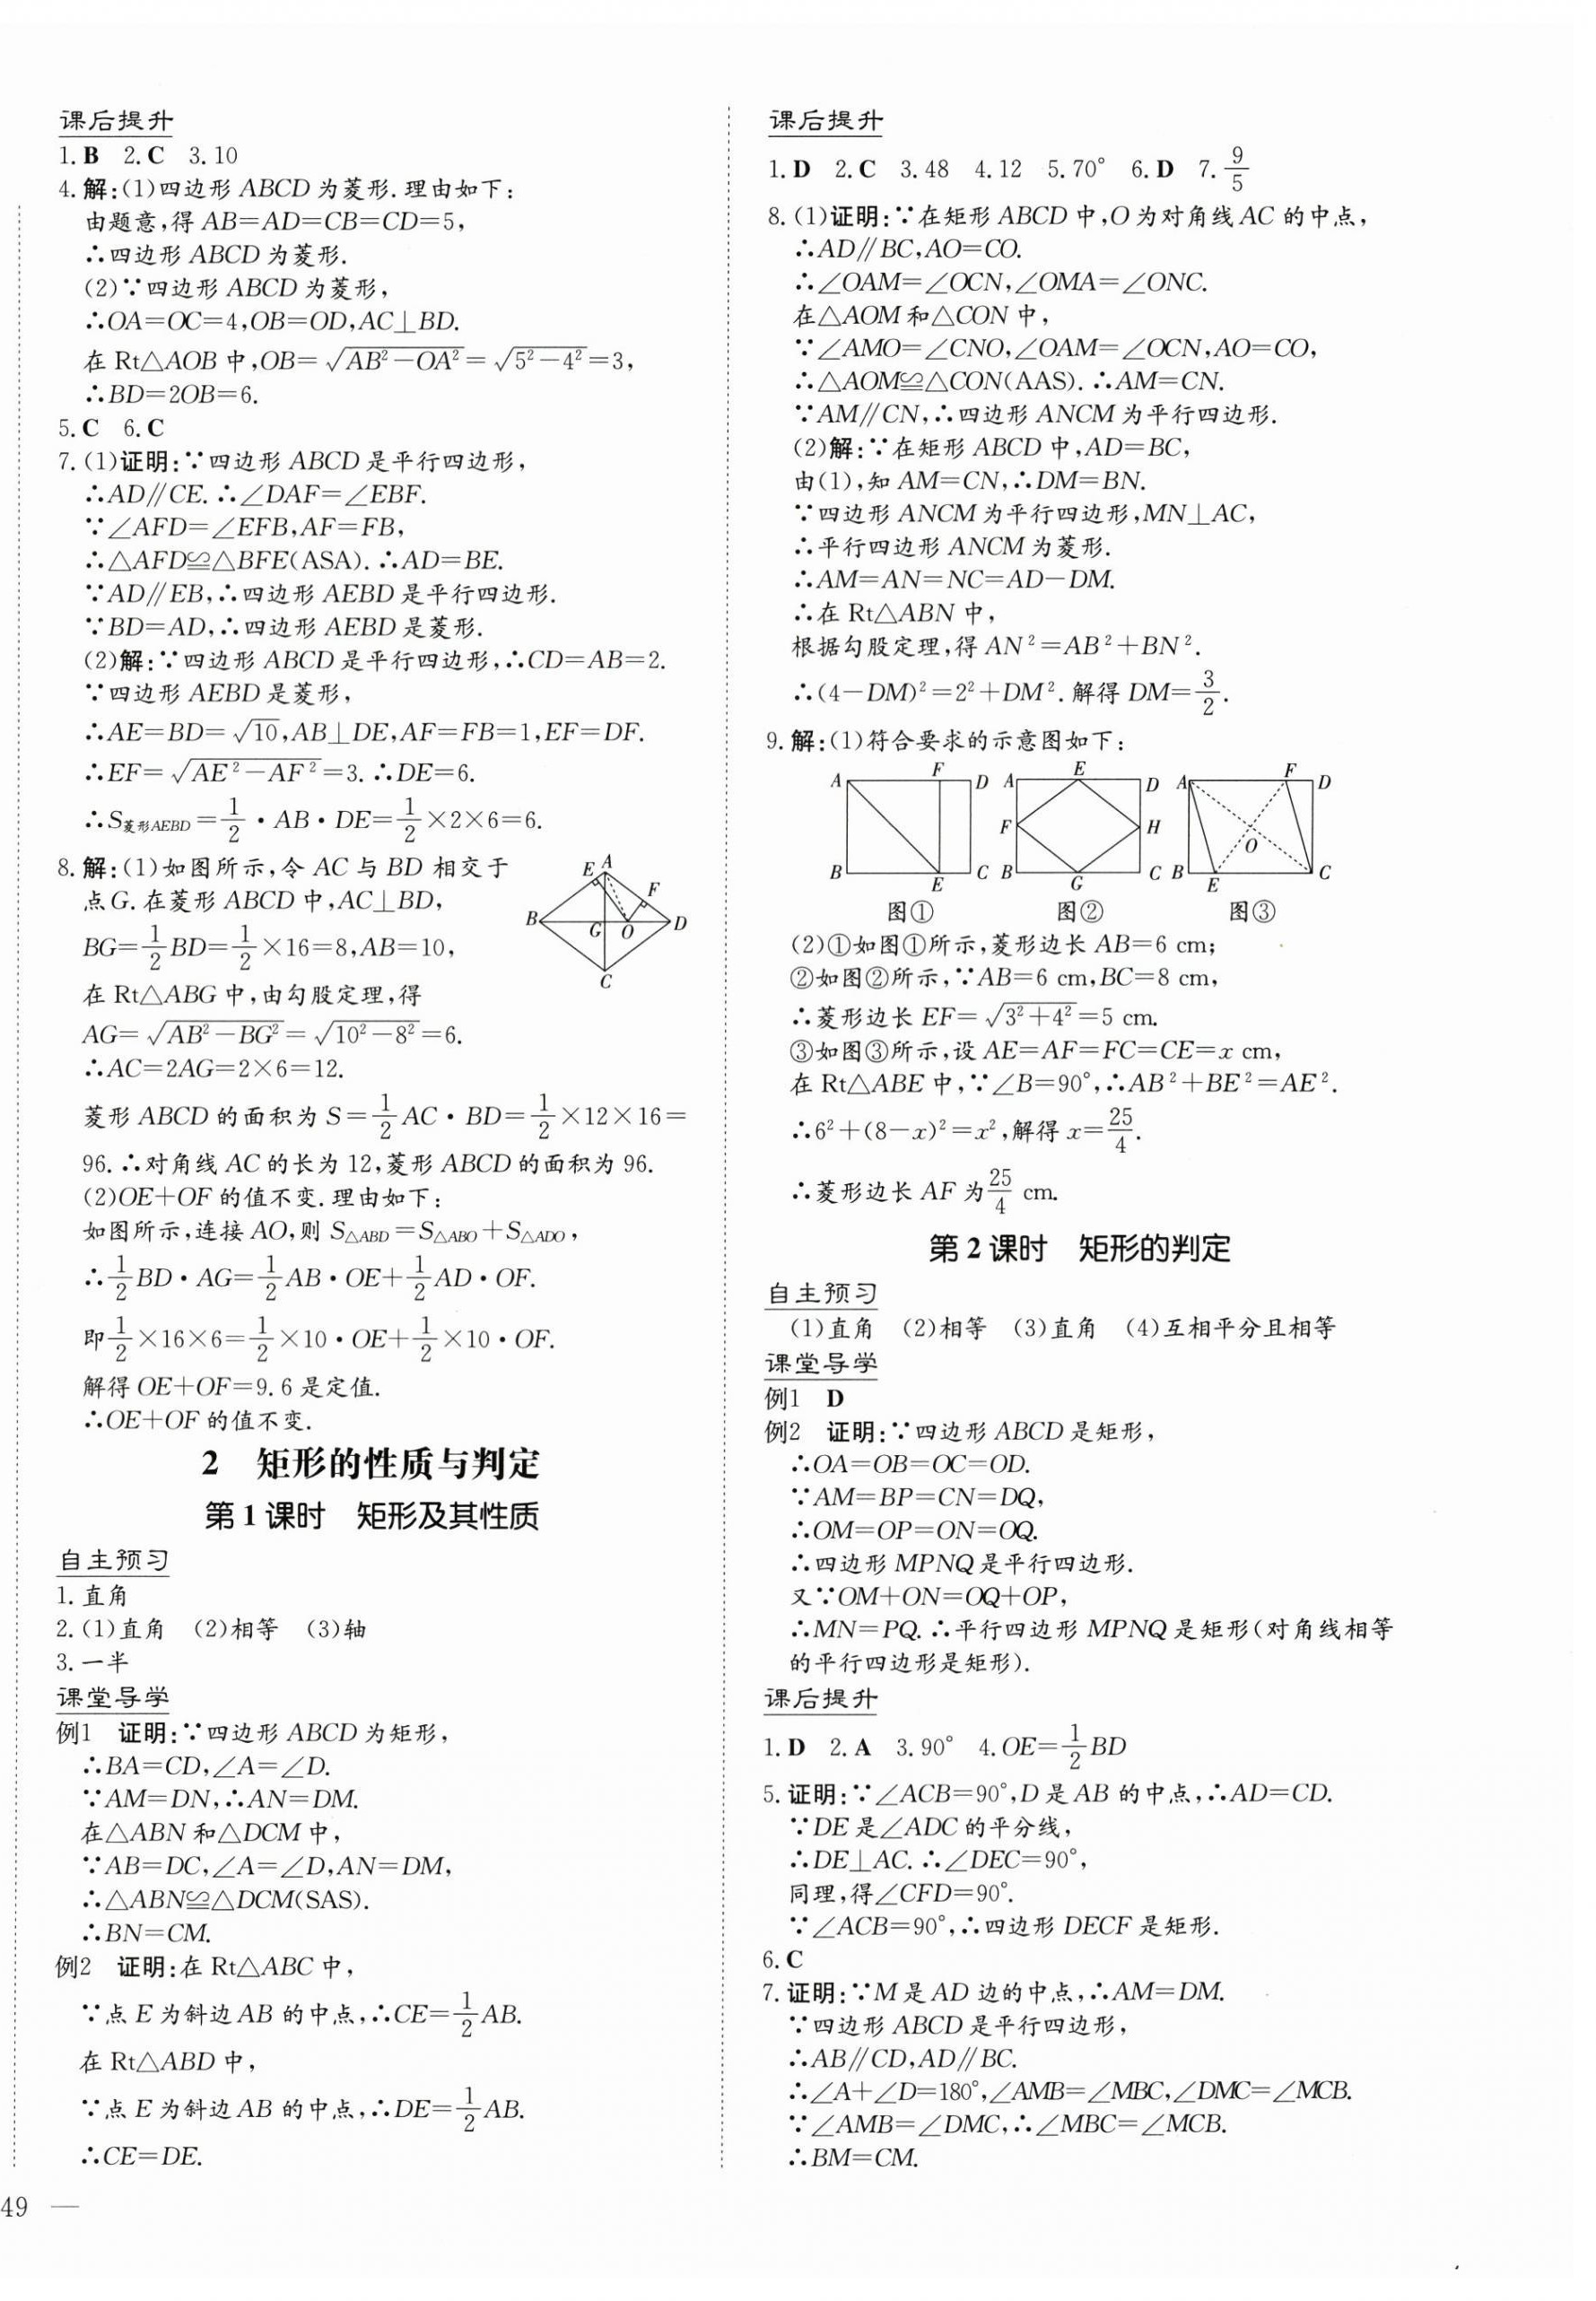 课后提升
1.B 2.C 3.10
4.解:(1)四边形ABCD为菱形.理由如下:
由题意,得AB=AD=CB=CD=5,
∴四边形ABCD为菱形.
(2)∵四边形ABCD为菱形,
∴OA=OC=4,OB=OD,AC⊥BD.
在Rt△AOB中,OB=√(AB²-OA²)=√(5²-4²)=3,
∴BD=2OB=6.
5.C 6.C
7.(1)证明:∵四边形ABCD是平行四边形,
∴AD∥CE.∴∠DAF=∠EBF.
∵∠AFD=∠EFB,AF=FB,
∴△AFD≌△BFE(ASA).∴AD=BE.
∵AD∥EB,∴四边形AEBD是平行四边形.
∵BD=AD,∴四边形AEBD是菱形.
(2)解:∵四边形ABCD是平行四边形,∴CD=AB=2.
∵四边形AEBD是菱形,
∴AE=BD=√10,AB⊥DE,AF=FB=1,EF=DF.
∴EF=√(AE²-AF²)=3.∴DE=6.
∴S菱形AEBD=1/2·AB·DE=1/2×2×6=6.
8.解:(1)如图所示,令AC与BD相交于
点G.在菱形ABCD中,AC⊥BD,
BG=1/2BD=1/2×16=8,AB=10,
在Rt△ABG中,由勾股定理,得
AG=√(AB²-BG²)=√(10²-8²)=6.
∴AC=2AG=2×6=12.
E A F B G O D C
菱形ABCD的面积为S=1/2AC·BD=1/2×12×16=
96.∴对角线AC的长为12,菱形ABCD的面积为96.
(2)OE+OF的值不变.理由如下:
如图所示,连接AO,则S△ABD=S△ABO+S△ADO,
∴1/2BD·AG=1/2AB·OE+1/2AD·OF.
即1/2×16×6=1/2×10·OE+1/2×10·OF.
解得OE+OF=9.6是定值.
∴OE+OF的值不变.
2 矩形的性质与判定
第1课时 矩形及其性质
自主预习
1.直角
2.(1)直角 (2)相等 (3)轴
3.一半
课堂导学
例1 证明:∵四边形ABCD为矩形,
∴BA=CD,∠A=∠D.
∵AM=DN,∴AN=DM.
在△ABN和△DCM中,
∵AB=DC,∠A=∠D,AN=DM,
∴△ABN≌△DCM(SAS).
∴BN=CM.
例2 证明:在Rt△ABC中,
∵点E为斜边AB的中点,∴CE=1/2AB.
在Rt△ABD中,
∵点E为斜边AB的中点,∴DE=1/2AB.
∴CE=DE.
49 —
课后提升
1.D 2.C 3.48 4.12 5.70° 6.D 7.9/5
8.(1)证明:∵在矩形ABCD中,O为对角线AC的中点,
∴AD∥BC,AO=CO.
∴∠OAM=∠OCN,∠OMA=∠ONC.
在△AOM和△CON中,
∵∠AMO=∠CNO,∠OAM=∠OCN,AO=CO,
∴△AOM≌△CON(AAS).∴AM=CN.
∵AM∥CN,∴四边形ANCM为平行四边形.
(2)解:∵在矩形ABCD中,AD=BC,
由(1),知AM=CN,∴DM=BN.
∵四边形ANCM为平行四边形,MN⊥AC,
∴平行四边形ANCM为菱形.
∴AM=AN=NC=AD-DM.
∴在Rt△ABN中,
根据勾股定理,得AN²=AB²+BN².
∴(4-DM)²=2²+DM².解得DM=3/2.
9.解:(1)符合要求的示意图如下:
A F D B E C
A E D F H B G C
A F D O B E C
图① 图② 图③
(2)①如图①所示,菱形边长AB=6 cm;
②如图②所示,∵AB=6 cm,BC=8 cm,
∴菱形边长EF=√(3²+4²)=5 cm.
③如图③所示,设AE=AF=FC=CE=x cm,
在Rt△ABE中,∵∠B=90°,∴AB²+BE²=AE².
∴6²+(8-x)²=x²,解得x=25/4.
∴菱形边长AF为25/4 cm.
第2课时 矩形的判定
自主预习
(1)直角 (2)相等 (3)直角 (4)互相平分且相等
课堂导学
例1 D
例2 证明:∵四边形ABCD是矩形,
∴OA=OB=OC=OD.
∵AM=BP=CN=DQ,
∴OM=OP=ON=OQ.
∴四边形MPNQ是平行四边形.
又∵OM+ON=OQ+OP,
∴MN=PQ.∴平行四边形MPNQ是矩形(对角线相等
的平行四边形是矩形).
课后提升
1.D 2.A 3.90° 4.OE=1/2BD
5.证明:∵∠ACB=90°,D是AB的中点,∴AD=CD.
∵DE是∠ADC的平分线,
∴DE⊥AC.∴∠DEC=90°,
同理,得∠CFD=90°.
∵∠ACB=90°,∴四边形DECF是矩形.
6.C
7.证明:∵M是AD边的中点,∴AM=DM.
∵四边形ABCD是平行四边形,
∴AB∥CD,AD∥BC.
∴∠A+∠D=180°,∠AMB=∠MBC,∠DMC=∠MCB.
∵∠AMB=∠DMC,∴∠MBC=∠MCB.
∴BM=CM.